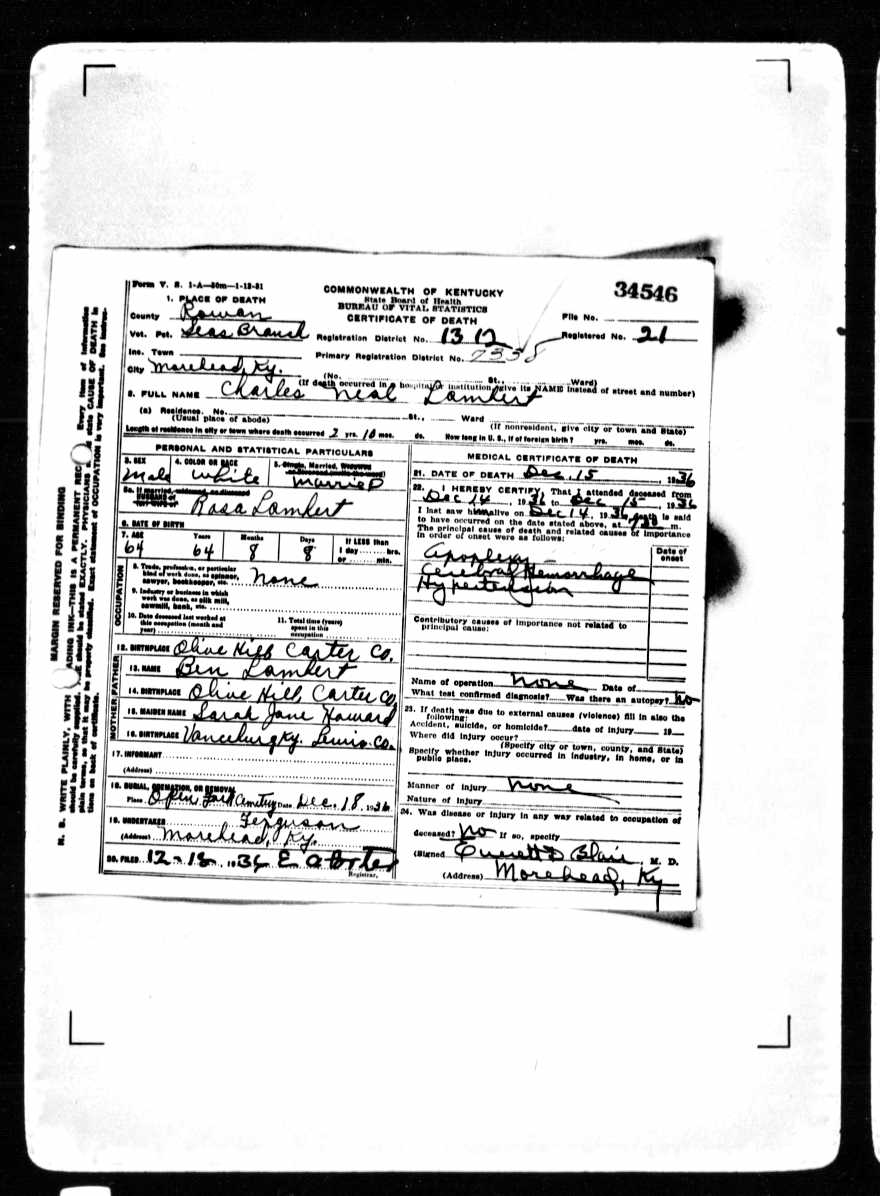 Form V. S. 1-A—50m—1-13-31
COMMONWEALTH OF KENTUCKY
State Board of Health
BUREAU OF VITAL STATISTICS
CERTIFICATE OF DEATH
34546
1. PLACE OF DEATH
County Rowan
Vot. Pct. Seas Branch
Registration District No. 1312
File No.
Registered No. 21
Inc. Town
Primary Registration District No. 7358
City Morehead, Ky.
(No. St., Ward)
(If death occurred in hospital or institution, give its NAME instead of street and number)
2. FULL NAME Charles Neal Lambert
(a) Residence. No. St., Ward
(Usual place of abode) (If nonresident, give city or town and State)
Length of residence in city or town where death occurred 2 yrs. 10 mos. ds. How long in U. S., if of foreign birth? yrs. mos. ds.
PERSONAL AND STATISTICAL PARTICULARS
3. SEX Male
4. COLOR OR RACE White
5. Single, Married, Widowed Married
Rosa Lambert
6. DATE OF BIRTH
7. AGE Years Months Days If LESS than
64 64 8 8 1 day hrs.
or min.
OCCUPATION
8. Trade, profession, or particular
kind of work done, as spinner,
sawyer, bookkeeper, etc. None
9. Industry or business in which
work was done, as silk mill,
sawmill, bank, etc.
10. Date deceased last worked at
this occupation (month and
year)
11. Total time (years)
spent in this
occupation
12. BIRTHPLACE Olive Hill Carter Co.
FATHER
13. NAME Ben Lambert
14. BIRTHPLACE Olive Hill, Carter Co
MOTHER
15. MAIDEN NAME Sarah Jane Howard
16. BIRTHPLACE Vanceburg Ky. Lewis Co.
17. INFORMANT
(Address)
18. BURIAL, CREMATION, OR REMOVAL
Place Open Fork Cemetry Date Dec. 18 1936
19. UNDERTAKER Ferguson
(Address) Morehead, Ky.
20. FILED 12-18 1936 E A
Registrar.
MEDICAL CERTIFICATE OF DEATH
21. DATE OF DEATH Dec. 15 1936
22. I HEREBY CERTIFY, That I attended deceased from
Dec 14, 1936 to Dec 15, 1936
I last saw him alive on Dec 14, 1936, death is said
to have occurred on the date stated above, at m.
The principal cause of death and related causes of importance
in order of onset were as follows:
Date of
onset
Apoplexy
Cerebral Hemorrhage
Hypertension
Contributory causes of importance not related to
principal cause:
Name of operation None Date of
What test confirmed diagnosis? Was there an autopsy? No
23. If death was due to external causes (violence) fill in also the
following:
Accident, suicide, or homicide? date of injury 19
Where did injury occur?
(Specify city or town, county, and State)
Specify whether injury occurred in industry, in home, or in
public place.
Manner of injury None
Nature of injury
24. Was disease or injury in any way related to occupation of
deceased? No If so, specify
(Signed Everett D Blair, M. D.
(Address) Morehead, Ky
MARGIN RESERVED FOR BINDING